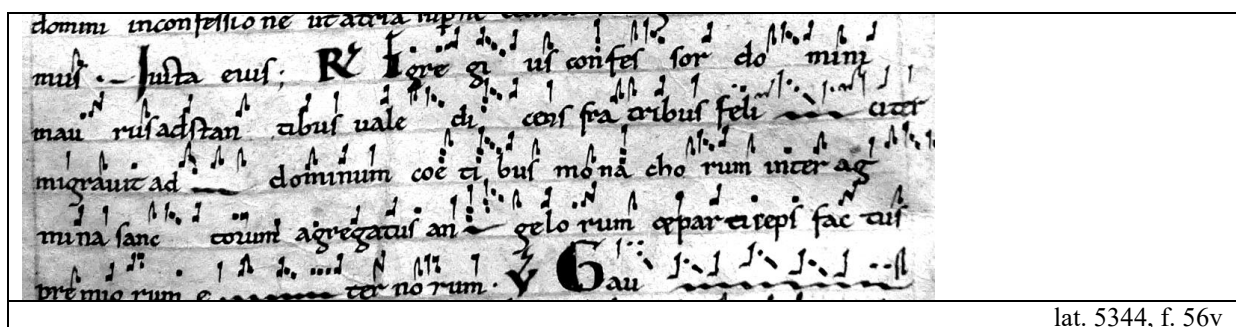 domini inconfessione ut atria
mus. Iusta eius; R Egre gi us confes sor do mini
mau rus adstan tibus uale di cens fra tribus feli citer
migrauit ad dominum coe ti bus mona cho rum inter ag
mina sanc torum agregatus an gelo rum particeps fac tus
premio rum e ter no rum. V Gau
lat. 5344, f. 56v